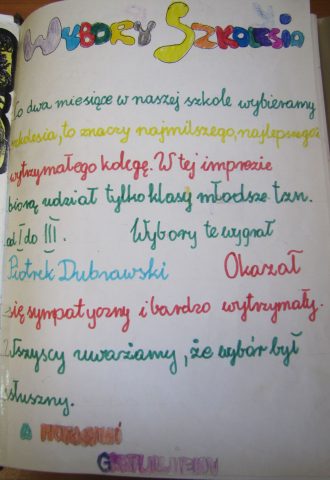 WYBORY SZKOLESIA
Co dwa miesiące w naszej szkole wybieramy
szkolesia, to znaczy najmilszego, najlepszego i
wytrzymałego kolegę. W tej imprezie
biorą udział tylko klasy młodsze tzn.
od I do III. Wybory te wygrał
Piotrek Dubrawski Okazał
się sympatyczny i bardzo wytrzymały.
Wszyscy uważamy, że wybór był
słuszny.